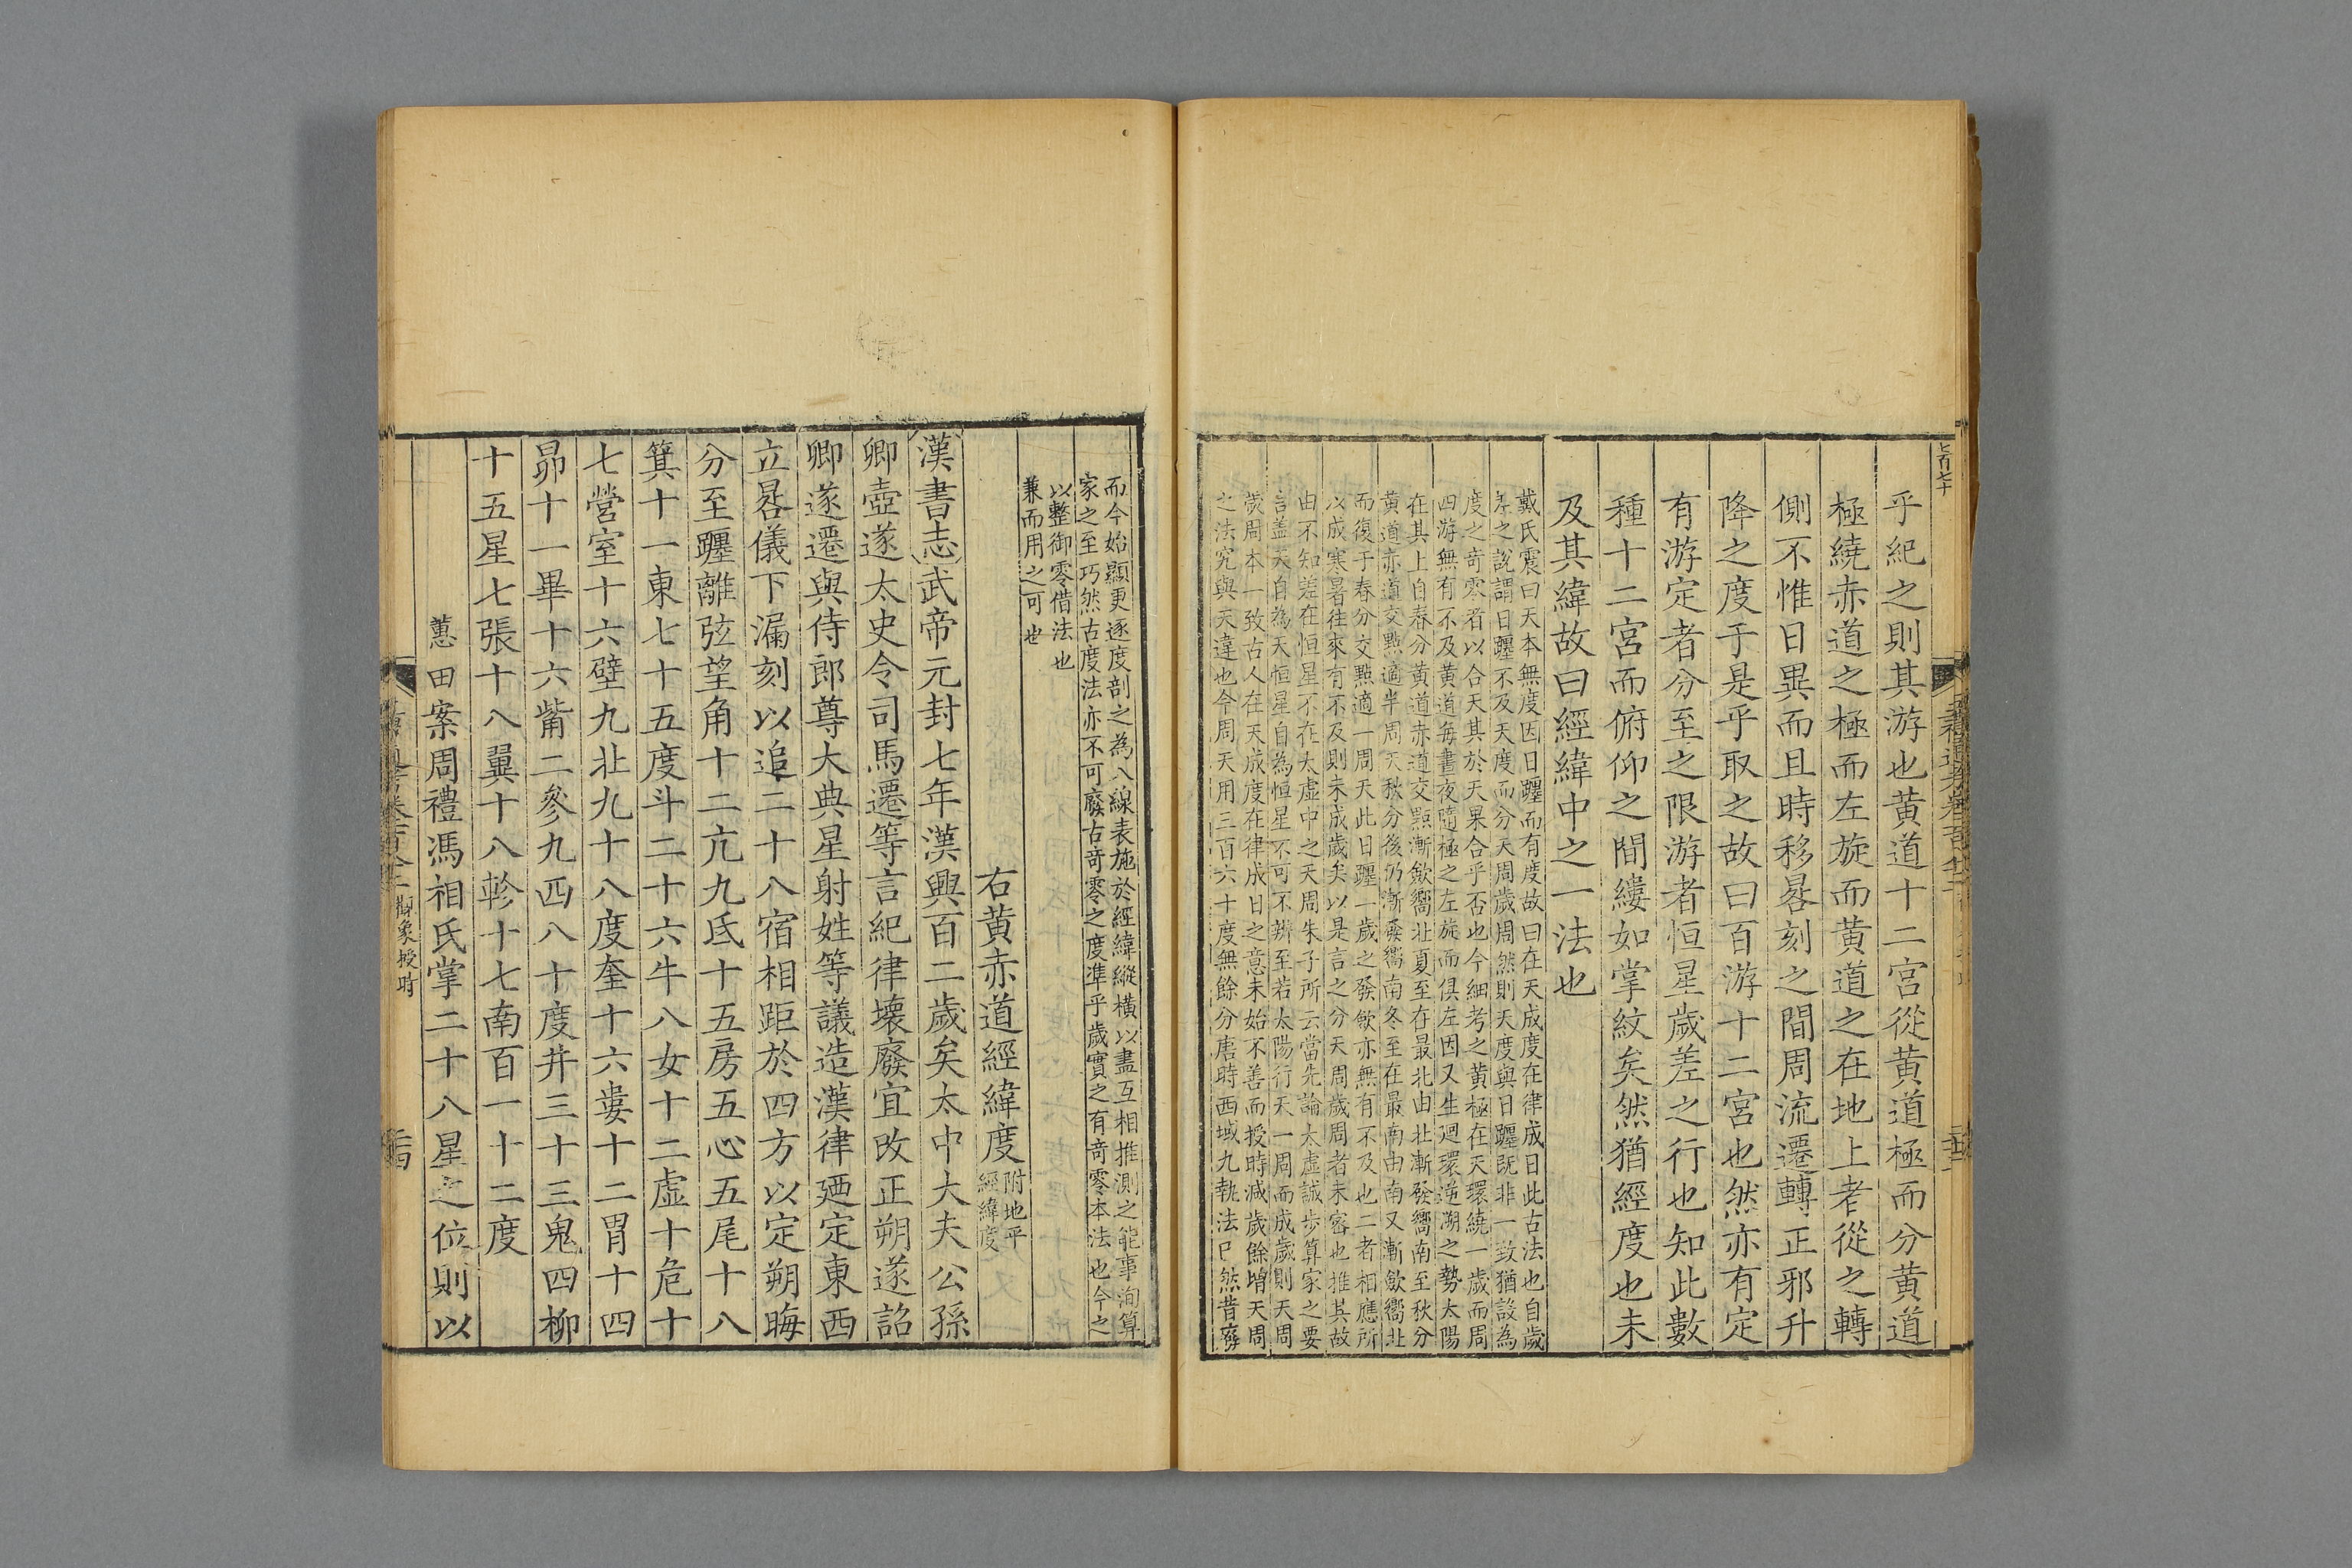 七百七十
乎紀之則其游也黄道十二宮從黄道極而分黄道
極繞赤道之極而左旋而黄道之在地上者從之轉
側不惟日異而且時移晷刻之間周流遷轉正邪升
降之度于是乎取之故曰百游十二宮也然亦有定
有游定者分至之限游者恒星歲差之行也知此數
種十二宮而俯仰之間縷如掌紋矣然猶經度也未
及其緯故曰經緯中之一法也
戴氏震曰天本無度因日躔而有度故曰在天成度在律成日此古法也自歲
差之說謂日躔不及天度而分天周歲周然則天度與日躔既非一致猶設為
度之竒零者以合天其於天果合乎否也今細考之黄極在天環繞一歲而周
四游無有不及黄道每晝夜隨極之左旋而俱左因又生迴環逆溯之勢太陽
在其上自春分黄道赤道交㸃漸歛嚮北夏至在最北由北漸發嚮南至秋分
黄道亦道交㸃適半周天秋分後仍漸發嚮南冬至在最南由南又漸歛嚮北
而復于春分交㸃適一周天此日躔一歲之發歛亦無有不及也二者相應所
以成寒暑往來有不及則未成歲矣以是言之分天周歲周者未審也推其故
由不知差在恒星不在太虛中之天周朱子所云當先論太虛誠步算家之要
言盖天自為天恒星自為恒星不可不辨至若太陽行天一周而成歲則天周
歲周本一致古人在天成度在律成日之意未始不善而授時減歲餘增天周
之法究與天違也今周天用三百六十度無餘分唐時西域九執法已然昔廢
而今始顯更逐度剖之為八線表施於經緯縱横以盡互相推測之能事洵算
家之至巧然古度法亦不可廢古竒零之度凖乎歲實之有竒零本法也今之
以整御零借法也
兼而用之可也
右黄赤道經緯度
附地平
經緯度
漢書志武帝元封七年漢興百二歲矣太中大夫公孫
卿壺遂太史令司馬遷等言紀律壊廢宜改正朔遂詔
卿遂遷與侍郎尊大典星射姓等議造漢律廼定東西
立晷儀下漏刻以追二十八宿相距於四方以定朔晦
分至躔離弦望角十二亢九氐十五房五心五尾十八
箕十一東七十五度斗二十六牛八女十二虚十危十
七營室十六壁九北九十八度奎十六婁十二胃十四
昴十一畢十六觜二參九西八十度井三十三鬼四柳
十五星七張十八翼十八軫十七南百一十二度
蕙田案周禮馮相氏掌二十八星之位則以
觀象授時